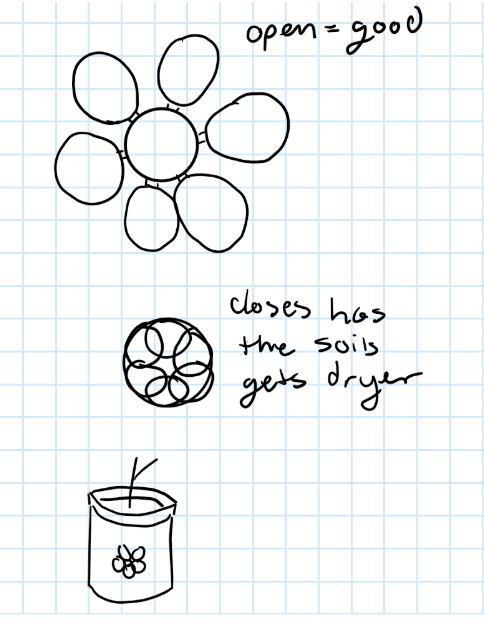 open = good
closes has
the soils
gets dryer